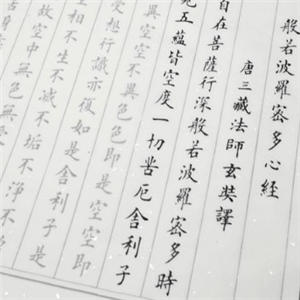 般若波羅蜜多心經
唐三藏法師玄奘譯
自在菩薩行深般若波羅蜜多時
見五蘊皆空度一切苦厄舍利子
異空空不異色色即是空空即
受想行識亦復如是舍利子是
相不生不滅不垢不淨不
故空中無色無受